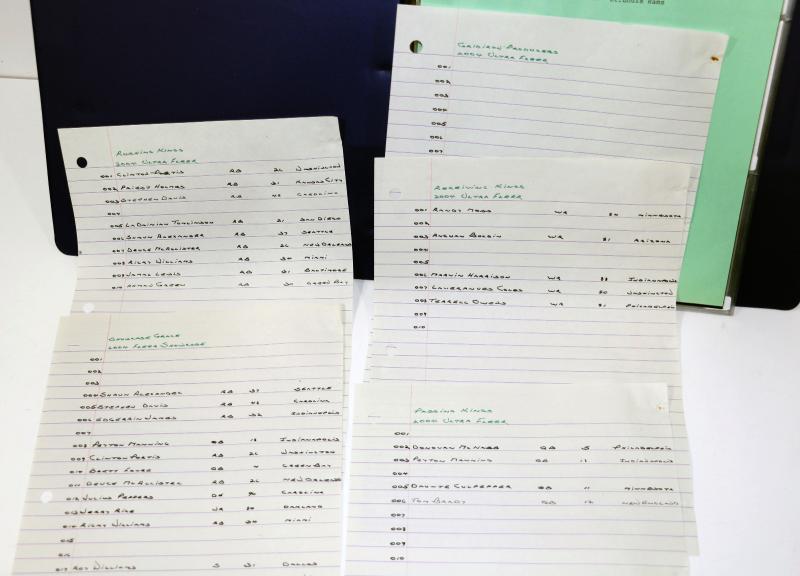 St. Louis Rams
GRIDIRON PRODUCERS
2004 ULTRA FLEER
001
002
003
004
005
006
007
RUSHING KINGS
2004 ULTRA FLEER
001 CLINTON PORTIS RB 26 WASHINGTON
002 PRIEST HOLMES RB 31 KANSAS CITY
003 STEPHEN DAVIS RB 48 CAROLINA
004
005 LADAINIAN TOMLINSON RB 21 SAN DIEGO
006 SHAUN ALEXANDER RB 37 SEATTLE
007 DEUCE MCALLISTER RB 26 NEW ORLEANS
008 RICKY WILLIAMS RB 34 MIAMI
009 JAMAL LEWIS RB 31 BALTIMORE
010 AHMAN GREEN RB 30 GREEN BAY
RECEIVING KINGS
2004 ULTRA FLEER
001 RANDY MOSS WR 84 MINNESOTA
002
003 ANQUAN BOLDIN WR 81 ARIZONA
004
005
006 MARVIN HARRISON WR 88 INDIANAPOLIS
007 LAVERANUES COLES WR 80 WASHINGTON
008 TERRELL OWENS WR 81 PHILADELPHIA
009
010
SHOWCASE GRACE
2004 FLEER SHOWCASE
001
002
003
004 SHAUN ALEXANDER RB 37 SEATTLE
005 STEPHEN DAVIS RB 48 CAROLINA
006 EDGERRIN JAMES RB 32 INDIANAPOLIS
007
008 PEYTON MANNING QB 18 INDIANAPOLIS
009 CLINTON PORTIS RB 26 WASHINGTON
010 BRETT FAVRE QB 4 GREEN BAY
011 DEUCE MCALLISTER RB 26 NEW ORLEANS
012 JULIUS PEPPERS DE 90 CAROLINA
013 JERRY RICE WR 80 OAKLAND
014 RICKY WILLIAMS RB 34 MIAMI
015
016
017 ROY WILLIAMS S 31 DALLAS
PASSING KINGS
2004 ULTRA FLEER
001
002 DONOVAN MCNABB QB 5 PHILADELPHIA
003 PEYTON MANNING QB 18 INDIANAPOLIS
004
005 DAUNTE CULPEPPER QB 11 MINNESOTA
006 TOM BRADY QB 12 NEW ENGLAND
007
008
009
010